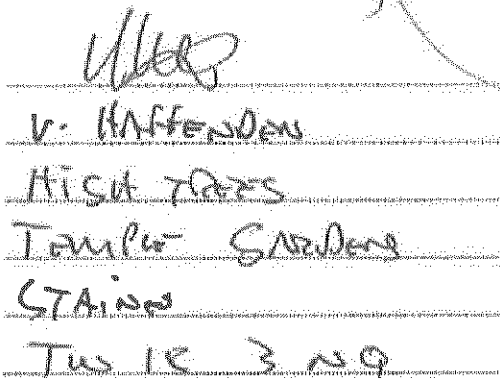 V. HAFFENDEN
HIGH TREES
TEMPLE GARDENS
STAINES
TW18 3NQ